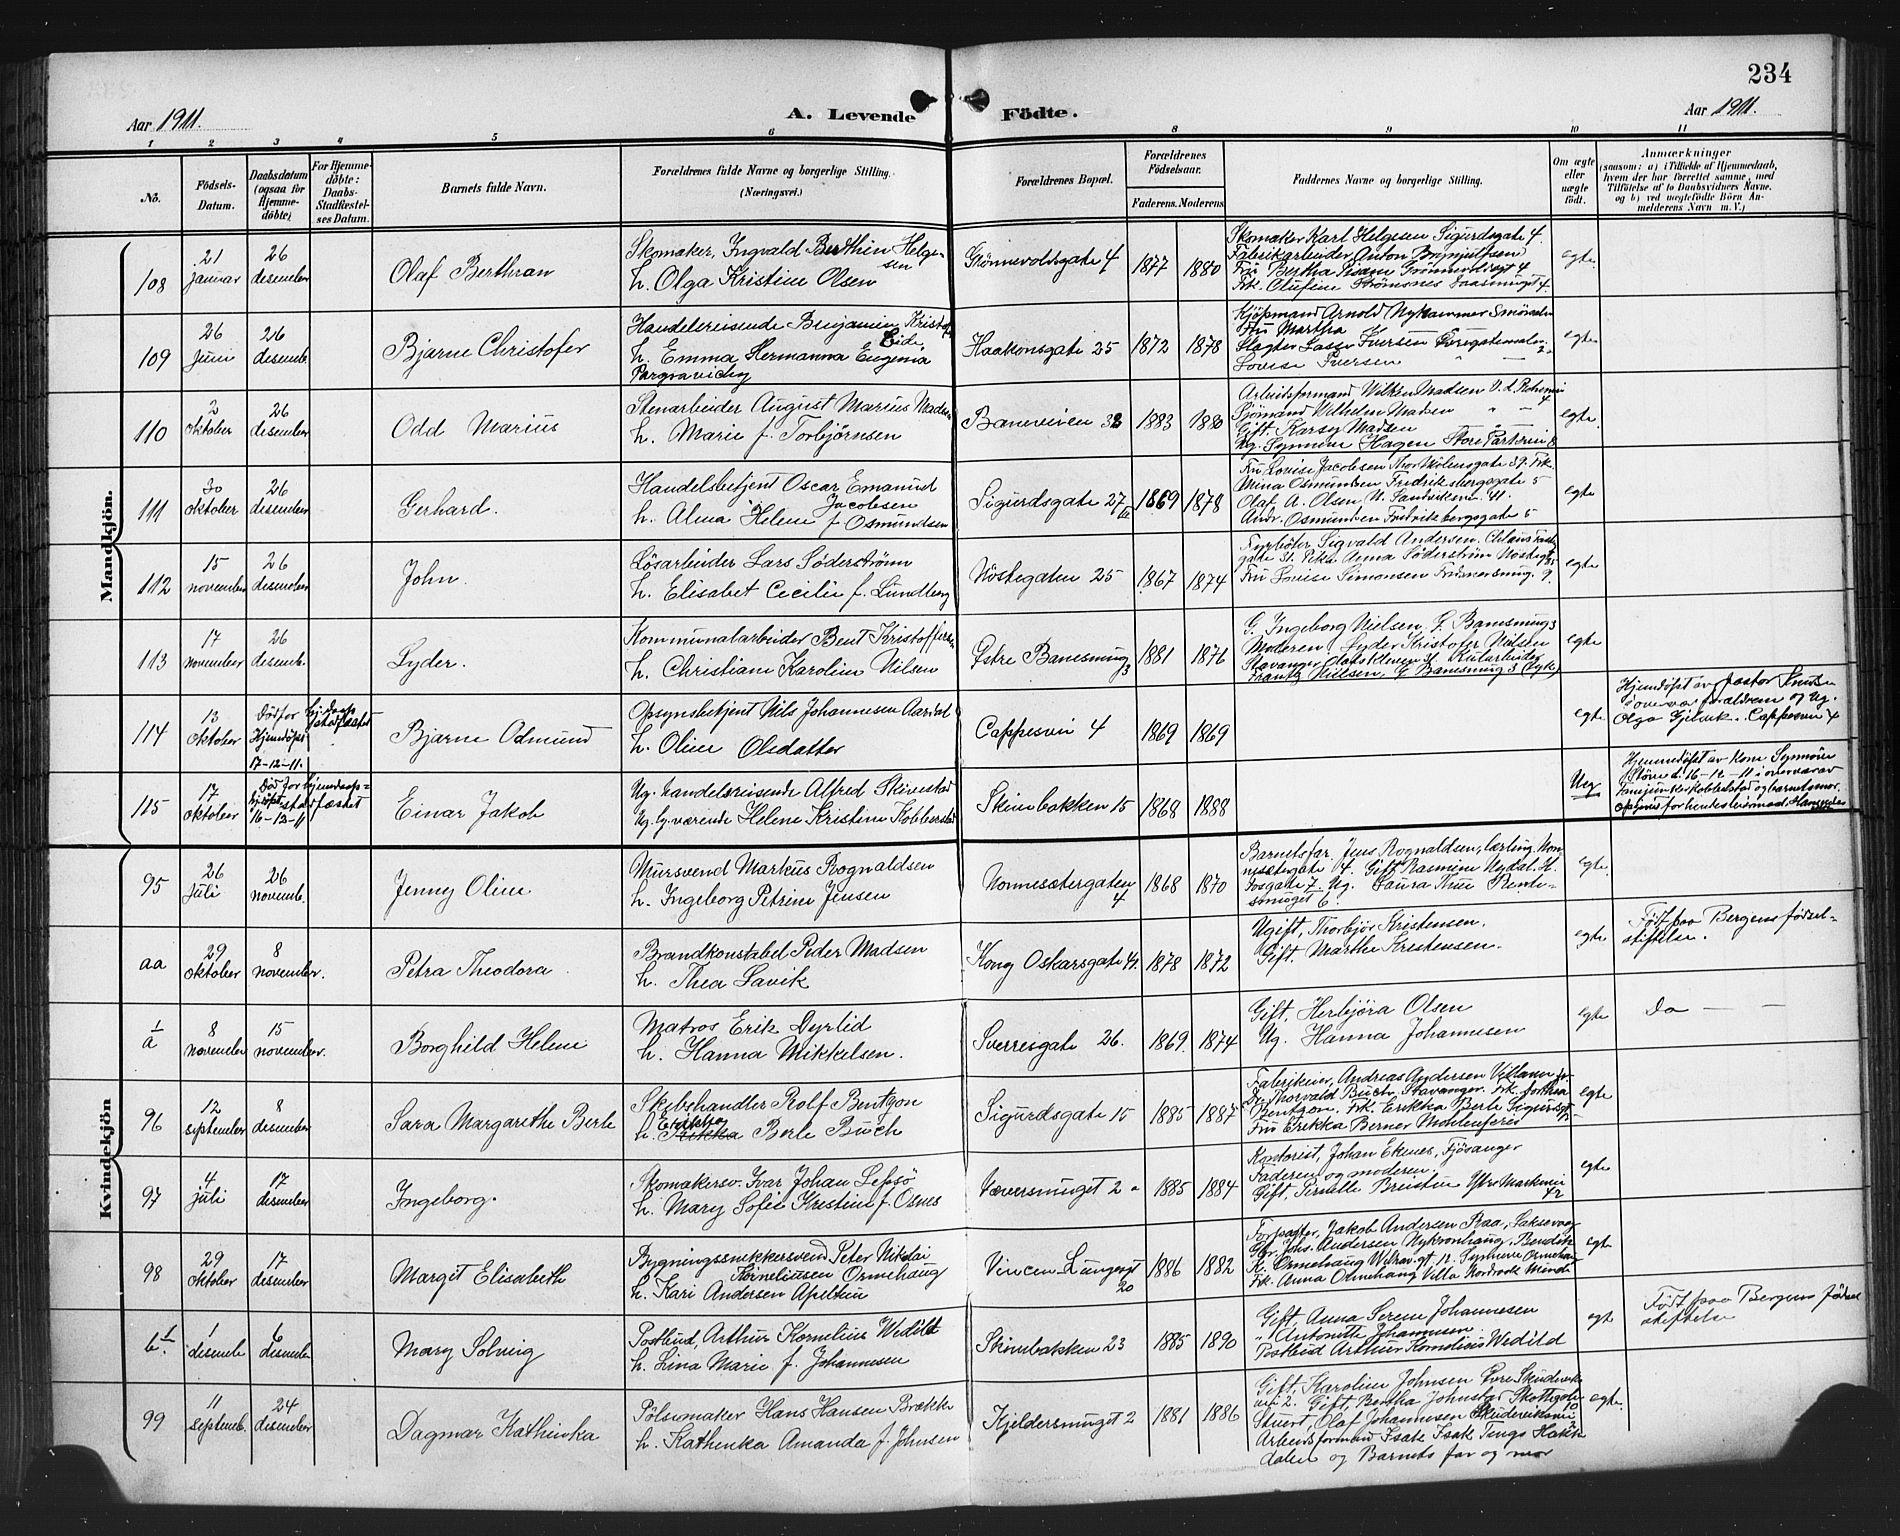 234
Aar 1911.
A. Levende Födte.
Aar 1911.
1 2 3 4 5 6 8 9 10 11
No.
Födsels-Datum.
Daabsdatum (ogsaa for Hjemme-döbte)
For Hjemme-döbte: Daabs-Stadfæstel-ses Datum.
Barnets fulde Navn.
Forældrenes fulde Navne og borgerlige Stilling.
(Næringsvei.)
Forældrenes Bopæl.
Forældrenes Födselsaar.
Faderens. Moderens.
Faddernes Navne og borgerlige Stilling.
Om ægte eller uægte födt.
Anmærkninger
(saasom: a) i Tilfælde af Hjemmedaab, hvem der har forrettet samme, med Tilföielse af to Daabsvidners Navne, og b) ved uægtefödte Börn An-melderens Navn m. V.)
Mandkjön.
108
21 januar
26 desember
Olaf Berthran
Skomaker, Ingvald Berthin Helge-sen
h. Olga Kristine Olsen
Grönnevoldsgate 4
1877 1880
Skomaker Karl Helgesen Sigurdsgate 4.
Fabrikarbeider Anton Brynjulfsen
egte
109
26 Juni
26 desemb.
Bjarne Christofer
Handelsreisende Benjamin Kristof
Eide
h. Emma Hermanna Eugenia
Haakonsgate 25
1872 1878
Kjöpmand Arnold
Fru Martha
Slagter Lasse Iversen
Lovise Iversen
egte
110
2 oktober
26 desember
Odd Marius
Stenarbeider August Marius Madsen
h. Marie f. Torbjörnsen
Baneveien 38
1883 1880
Arbeidsformand Wilken Madsen
Sjömand Wilhelm Madsen
Gift Karsy Madsen
Ug. Synnöve Hagen Store
egte.
111
30 oktober
26 desember
Gerhard.
Handelsbetjent Oscar Emanuel
Jacobsen
h. Alma Helene f. Osmundsen
Sigurdsgate 27 III
1869 1878
Fru Lovise Jacobsen Thor Mölensgate 39. Frk.
Mina Osmundsen Fredriksbergsgate 5
Olaf A. Olsen, N. Sandviksv. 41.
Andr. Osmundsen Fredriksbergsgate 5
egte
112
15 november
26 desember
John.
Lösarbeider Lars Söderström
h. Elisabet Cecilie f. Lundberg
Nöstegaten 25
1867 1874
Fyrböter Sigvald Andersen.
gate 31. Pike Anna Söderström Nöstegt 25
Fru Lovise Simonsen 9.
egte
113
17 november
26 desemb.
Lyder.
Kommunalarbeider Bent Kristoffersen
h. Christiane Karoline Nilsen
Östre Banesmug 3
1881 1876
G. Ingeborg Nielsen, Ö. Banesmug 3
Moderen. Lyder Kristofer Nielsen
Frantz Nielsen, Ö. Banesmug 3
egte
114
13 oktober
Död för hj.daab stadfæstet
Hjemdöpt 17-12-11.
Bjarne Odmund
Opsynsbetjent Nils Johannesen Aarstad
h. Oline Olsdatter
Cappesvei 4
1869 1869
egte
Hjemdöpt av Pastor
i overvær forældrene og Ug.
Olga Cappesvei 4
115
17 oktober
Död for hjemdaaps-
stadfæstet
16-12-11
Einar Jakob
Ug. handelsreisende Alfred Skivestad
Ug. hj.værende Helene Kristine Kobbestad
Skivebakken 15
1868 1888
Ueg
Hjemmedöpt av kone Synnöve
Störe d. 16-12-11 i overvær av
Kvindekjön
95
26 Juli
26 novemb.
Jenny Oline
Mursvend Markus Rognaldsen
h. Ingeborg Petrine Jensen
Nonnesætergaten 4
1868 1870
Barnets far. Jens Rognaldsen, lærling. Non-
nesætergate 4. Gift Rasmine Nydal. H.
egte.
aa
29 oktober
8 november.
Petra Theodora
Brandkonstabel Peder Madsen
h. Thea Lavik
Kong Oskarsgate 41.
1878 1872
Ugift, Thorbjör Kristensen.
Gift. Marthe Kristensen.
egte
Födt paa Bergens födsel-
stiftelse.
1/a
8 november
15 november.
Borghild Helene
Matros Erik Dyrlid
h. Hanna Mikkelsen.
Sverresgate 26.
1869. 1874
Gift, Herbjöra Olsen
Ug. Hanna Johannesen
egte
Do — —
96
12 september
8 desember
Sara Margarethe Berle
Skibshandler Rolf Bentzon
h. Erikka Berle Buch
Sigurdsgate 15
1885 1887
Fabrikeier, Andreas Andersen
Hr. Thorvald Buch, Stavanger. Frk.
Bentzon. Frk. Erikka Berle Sigurdsgt 15
Fru Erikka Berner
egte
97
4 juli
17 desember
Ingeborg.
Skomakersv. Ivar Johan Lepsö
h. Mary Sofie Kristine f. Osnes
Væversmuget 2 a
1885 1884
Kontorist, Johan Ekenes, Fjösanger
Faderen og moderen.
Gift, Pernille Breistein Ytre Markevei 42
egte
98
29 oktober
17 desember
Margit Elisabeth
Bygningssnekkersvend Peter Nikolai
Korneliussen Ormehaug
h. Kari Andersen Apeltun
Vincen Lungesgt 20
1886 1882
Forpagter, Jakob Andersen Raa, Laksevaag
Gbr. Johs. Andersen Nykronhaug, Bendik
K. Ormehaug 12. Synnöve Ormehaug
Frk. Anna Ormehaug Villa Nordvock Minde
egte
b 1/
1 desemb
6 desemb
Mary Solveig
Postbud, Arthur Kornelius Wedild
h. Lina Marie f. Johannesen
Skivebakken 23
1885 1890
Gift, Anna Serene Johannesen
" Antonette Johannesen
Postbud Arthur Kornelius Wedild
egte
Födt paa Bergens födsel
stiftelse
99
11 septemb.
24 desember
Dagmar Kathinka
Pölsemaker Hans Hansen Brække
h. Kathinka Amanda f. Johnsen
Kjeldersmuget 2
1881 1886
Gift, Karoline Johnsen Övre Skudeviks
vei 2. Gift, Bertha Johnstad
Stuert, Olaf Johannesen Skudeviksvei 2
Arbeidsformand Isak Isak
dalen og Barnets far og mor
egte.